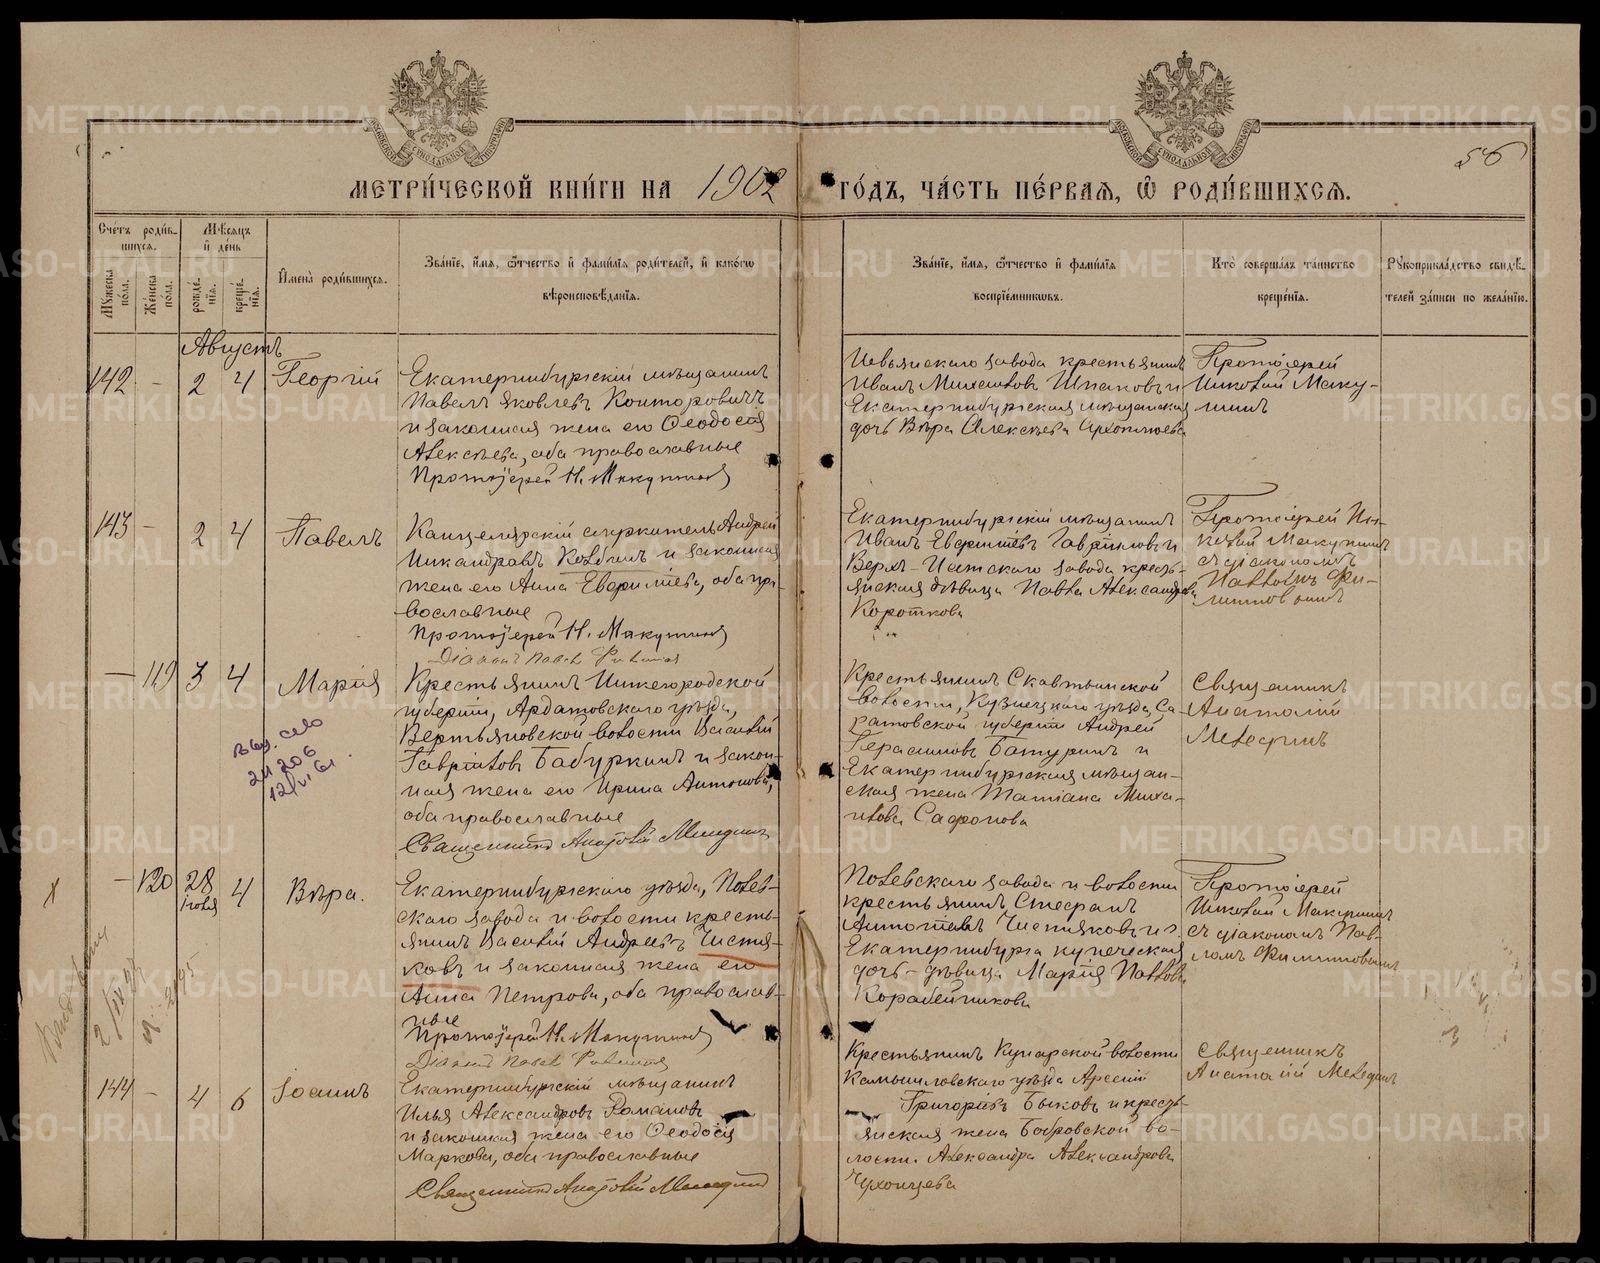 56
МЕТРИ́ЧЕСКОЙ КНИ́ГИ НА 1902 ГО́ДЪ, ЧА́СТЬ ПЕ́РВАЯ, Ѡ҃ РОДИ́ВШИХСЯ.
Счетъ роди́в-
шихся.
Мѣсяцъ
и де́нь
Мꙋжеска по́ла.
Же́нска по́ла.
рожде́-
нія.
креще́-
нія.
Имена̀ роди́вшихся.
Зва́ніе, и́мя, ѻ҆́тчество и фами́лія роди́телей, и како́гѡ
вѣроисповѣ́данія.
Зва́ніе, и́мя, ѻ҆́тчество и фами́лія
воспріе́мниковъ.
Кто̀ соверша́лъ та́инство
креще́нія.
Рꙋкоприкла́дство свидѣ́-
телей за́писи по жела́нію.
Августъ
142 - 2 4 Георгій
Екатеринбургскій мѣщанинъ
Павелъ Яковлевъ Конторовичъ
и законная жена его Ѳеодосія
Алексѣева, оба православные
Протоіерей Н. Макушинъ
Невьянскаго завода крестьянинъ
Иванъ Михаиловъ Шпаковъ и
Екатеринбургская мѣщанская
дочь Вѣра Алексѣева
Протоіерей
Николай Маку-
шинъ
143 - 2 4 Павелъ
Канцелярскій служитель Андрей
Никандровъ и законная
жена его Анна Евфиміева, оба пра-
вославные
Протоіерей Н. Макушинъ
Діаконъ Павелъ
Екатеринбургскій мѣщанинъ
Иванъ Гавриловъ и
Верхъ-Исетскаго завода кресть-
янская дѣвица Павла Александрова
Короткова
Протоіерей Ни-
колай Макушинъ
съ діакономъ
Павломъ Фи-
- 119 3 4 Марія
Крестьянинъ Нижегородской
губерніи, Ардатовскаго уѣзда,
Вертьяновской волости Василій
Гавріиловъ Бабуркинъ и закон-
ная жена его Ирина Антонова,
оба православные
Священникъ Анатолій
Крестьянинъ
волости, Кузнецкаго уѣзда, Са-
ратовской губерніи Андрей
Герасимовъ Батуринъ и
Екатеринбургская мѣщан-
ская жена Татіана Миха-
илова Сафонова
Священникъ
Анатолій
выд. св-во
12/VI 61
- 120 28 Іюля 4 Вѣра.
Екатеринбургскаго уѣзда, Полев-
скаго завода и волости кресть-
янинъ Василій Андреевъ Чистя-
ковъ и законная жена его
Анна Петрова, оба православ-
ные
Протоіерей Н. Макушинъ
Діаконъ Павелъ
Полевскаго завода и волости
крестьянинъ Стефанъ
Чистяковъ и г.
Екатеринбурга купеческая
дочь-дѣвица Марія Павлова
Корабейникова
Протоіерей
Николай Макушинъ
съ діакономъ Пав-
ломъ
144 - 4 6 Іоаннъ
Екатеринбургскій мѣщанинъ
Илья Александровъ Романовъ
и законная жена его Ѳеодосія
Маркова, оба православные
Священникъ Анатолій
Крестьянинъ волости
Камышловскаго уѣзда Арсеній
Григорьевъ Быковъ и кресть-
янская жена Бобровской во-
лости Александра Александрова
Священникъ
Анатолій